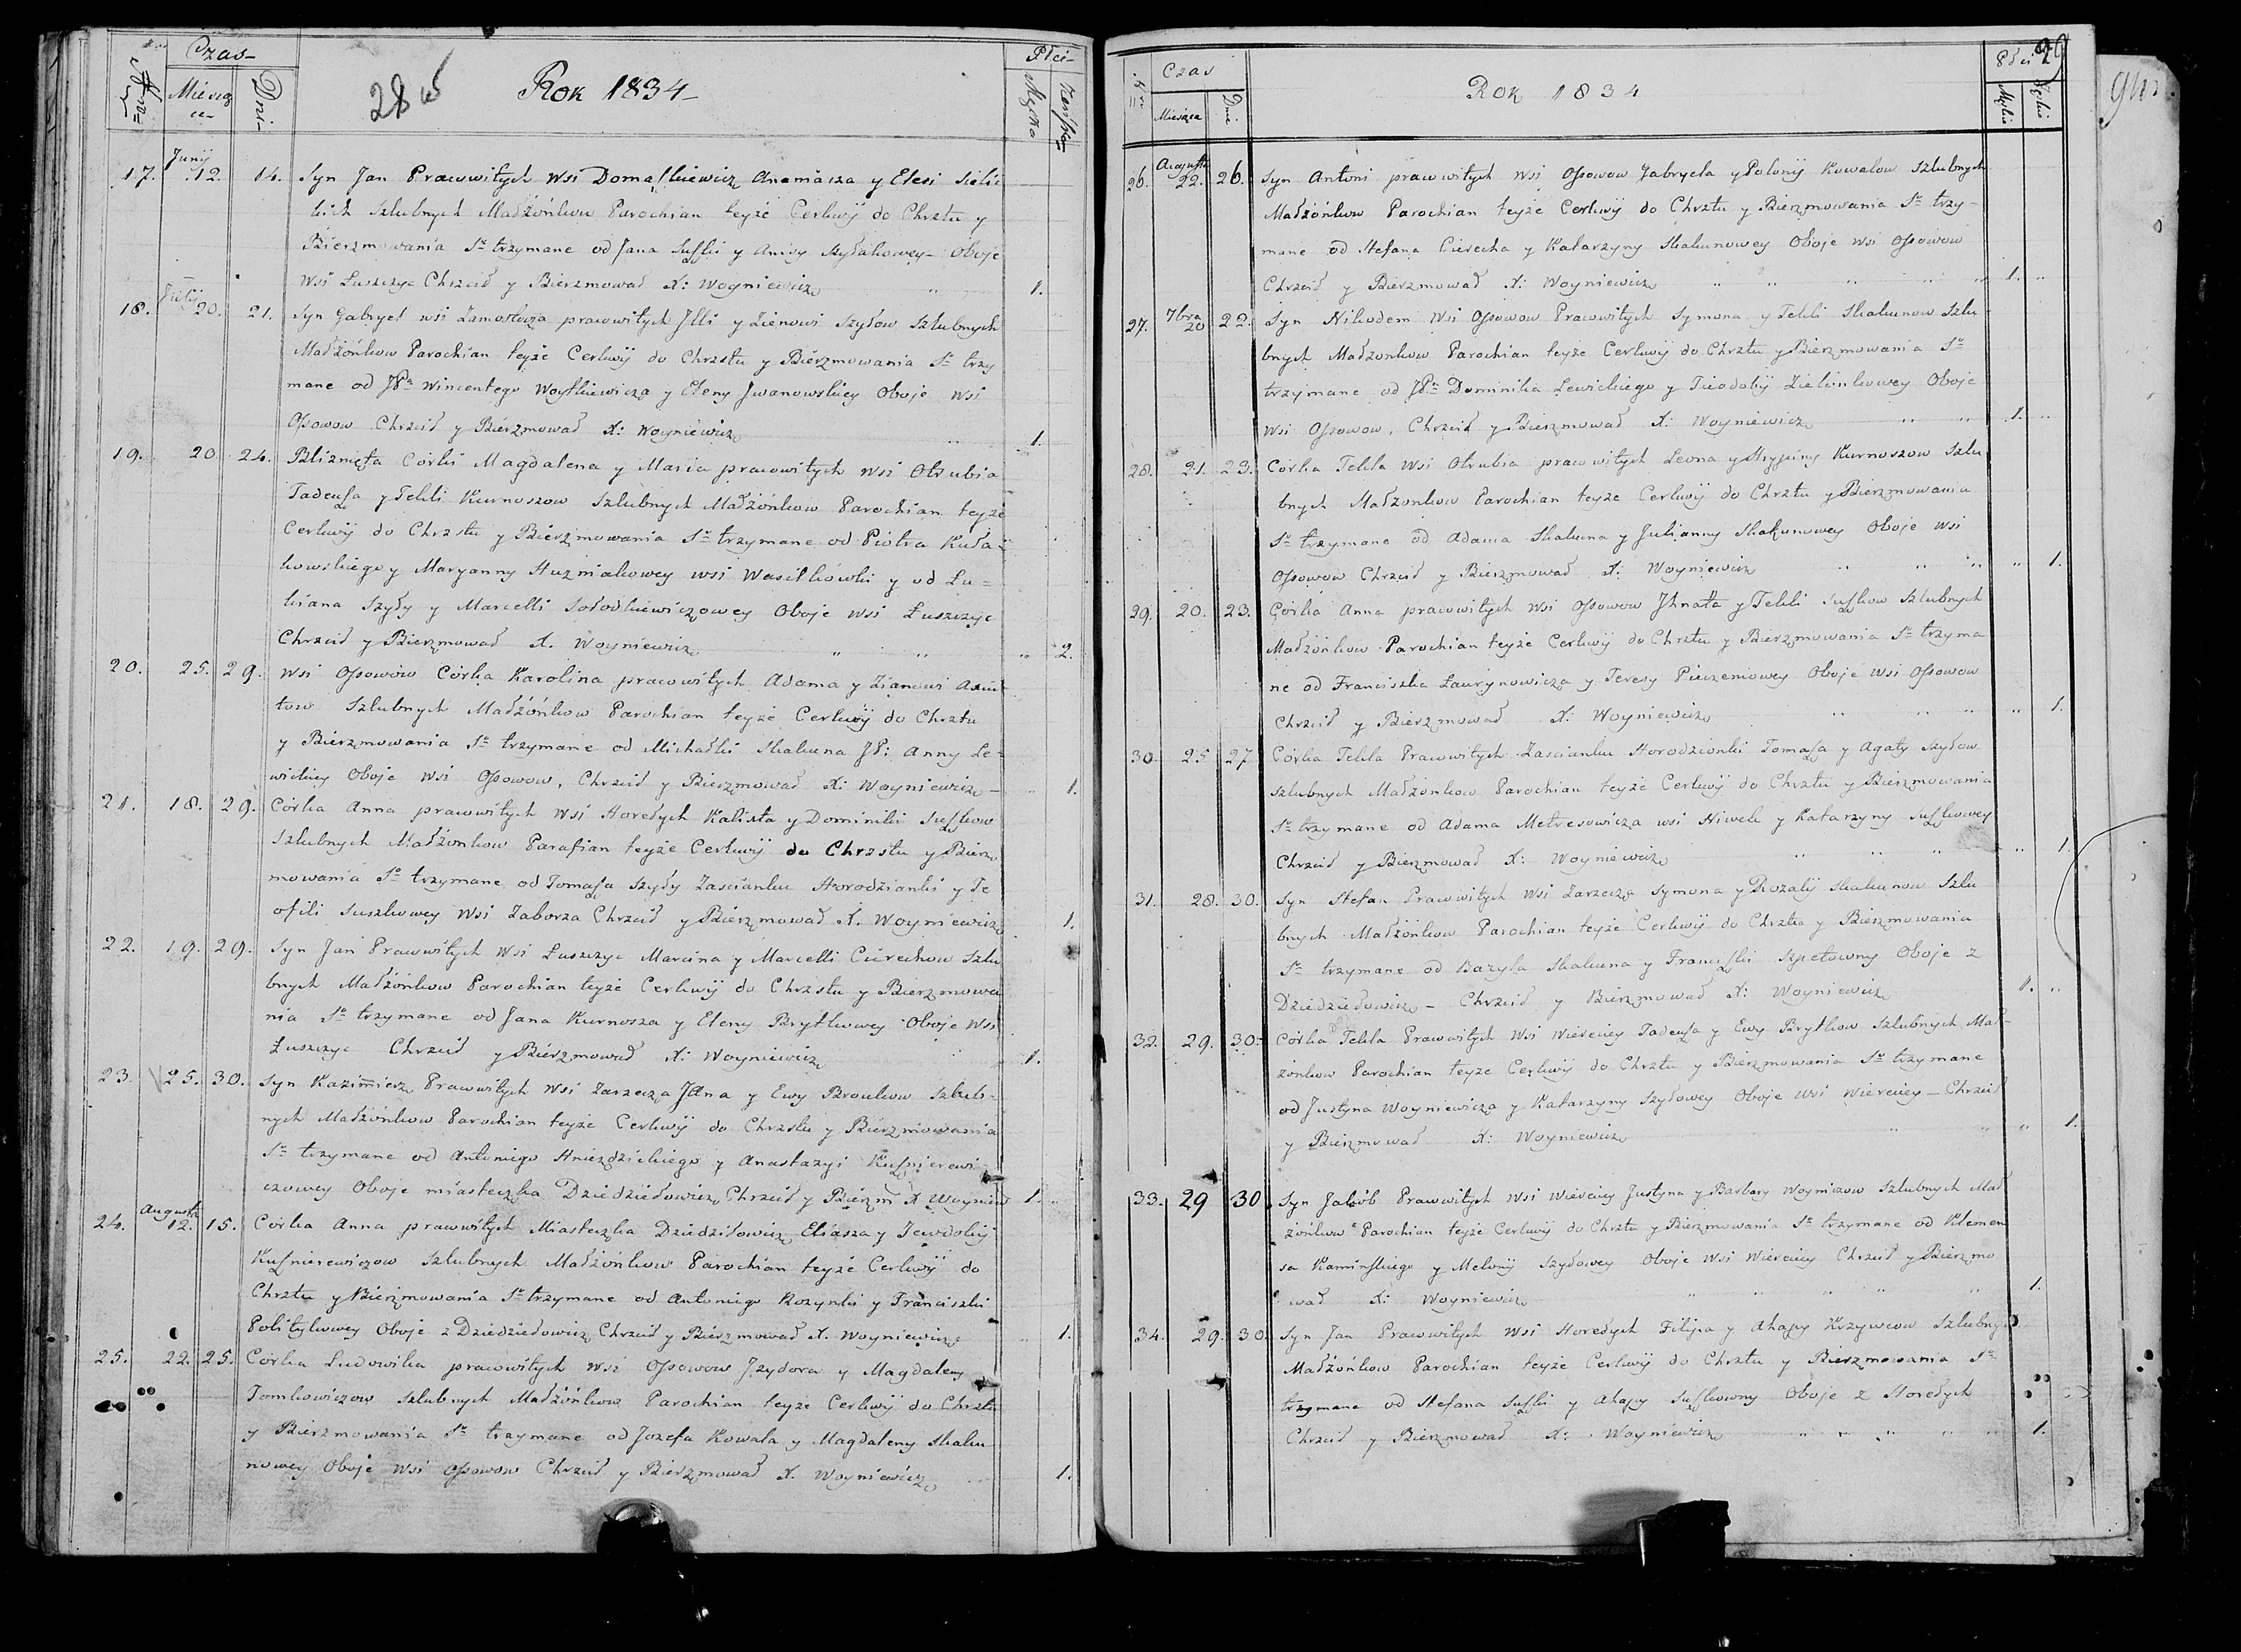 Czas
Miesiąc
Dni
28 of
Rok 1834
Płci
Męzka
Żeńska
Junij
17. 12. 14. Syn Jan Pracowitych wsi Domaszkiewicz Ananiasza y Elesi Sielic
kich szlubnych Małżonkow Parochian teyże Cerkwij do Chrztu y
Bierzmowania Sgo trzymane od Jana Suszki y Anisy Szydłakowey Oboje
wsi Łuszczyc Chrzcił y Bierzmował X: Woyniewicz 1.
Julij
18. 20. 21. Syn Gabryel wsi Zamostocza pracowitych Illi y Zienowi Szydow szlubnych
Małżonkow Parochian teyże Cerkwij do Chrzstu y Bierzmowania Sgo trzy
mane od JPa Wincentego Woytkiewicza y Eleny Jwanowskiey Oboje wsi
Ossowow Chrzcił y Bierzmował X: Woyniewicz 1.
19. 20. 24. Bliznięta Corki Magdalena y Maria pracowitych wsi Otrubia
Tadeusza y Tekli Kurnoszow szlubnych Małżonkow Parochian teyże
Cerkwij do Chrzstu y Bierzmowania Sgo trzymane od Piotra Kuła
kowskiego y Maryanny Huzniakowey wsi Wasilkówki y od Lu=
kiana Szydy y Marcelli Sołodkiewiczowey Oboje wsi Łuszczyc
Chrzcił y Bierzmował X. Woyniewicz " " " 2.
20. 25. 29. wsi Ossowow Corka Karolina pracowitych Adama y Zianowi
tow szlubnych Małżonkow Parochian teyże Cerkwij do Chrztu
y Bierzmowania Sgo trzymane od Michałki Skakuna JP: Anny Le=
wickiey Oboje wsi Ossowow, Chrzcił y Bierzmował X: Woyniewicz 1.
21. 18. 29. Corka Anna pracowitych wsi Horedych Kalista y Dominiki Suszkow
szlubnych Małżonkow Parafian teyże Cerkwij do Chrzstu y Bierz
mowania Sgo trzymane od Tomasza Szydy Zascianku Horodzianki y Te
ofili Suszkowey wsi Zaborza Chrzcił y Bierzmował X. Woyniewicz 1.
22. 19. 29. Syn Jan Pracowitych wsi Łuszczyc Marcina y Marcelli Cierechow szlu
bnych Małżonkow Parochian teyże Cerkwij do Chrzstu y Bierzmowa
nia Sgo trzymane od Jana Kurnosza y Eleny Brytkowey Oboje wsi
Łuszczyc Chrzcił y Bierzmował X: Woyniewicz 1.
23. 25. 30. Syn Kazimierz Pracowitych wsi Zarzecza Jana y Ewy Broukow szlub-
nych Małżonkow Parochian teyże Cerkwij do Chrzstu y Bierzmowania
Sgo trzymane od Antoniego Hniezdzickiego y Anastazyi Kusznierewi
czowey Oboje miasteczka Dziedziełowicz Chrzcił y Bierzm X Woyniew 1.
Augusta
24. 12. 15. Corka Anna pracowitych Miasteczka Dziedziłowicz Eliasza y Jewdokij
Kusznierewiczow szlubnych Małżonkow Parochian teyże Cerkwij do
Chrztu y Bierzmowania Sgo trzymane od Antoniego Rozynki y Franciszki
Politykowey Oboje z Dziedziełowicz Chrzcił y Bierzmował X. Woyniewicz 1.
25. 22. 25. Corka Ludowika pracowitych wsi Ossowow Jzydora y Magdaleny
Tomkowiczow szlubnych Małżonkow Parochian teyże Cerkwij do Chrztu
y Bierzmowania Sgo trzymane od Jozefa Kowala y Magdaleny Skaku
nowey Oboje wsi Ossowow Chrzcił y Bierzmował X. Woyniewicz 1.
29
Czas
Miesiąca
Dni.
Rok 1834
Płci
Augusta
26. 22. 26. Syn Antoni pracowitych wsi Ossowow Gabryela y Polonij Kowalow szlubnych
Małżonkow Parochian teyże Cerkwij do Chrztu y Bierzmowania Sgo trzy-
mane od Stefana Cierecha y Katarzyny Skakunowey Oboje wsi Ossowow
Chrzcił y Bierzmował X: Woyniewicz " " " " 1. "
7bra
27. 20 22. Syn Nikodem wsi Ossowow Pracowitych Symona y Tekli Skakunow szlu
bnych Małżonkow Parochian teyże Cerkwij do Chrztu y Bierzmowania Sgo
trzymane od JPa Dominika Lewickiego y Tieodobij Zielonkowey Oboje
wsi Ossowow, Chrzcił y Bierzmował X: Woyniewicz " " 1. "
28. 21. 23. Corka Tekla wsi Otrubia pracowitych Leona y Kurnoszow szlu
bnych Małżonkow Parochian teyże Cerkwij do Chrztu y Bierzmowania
Sgo trzymane od Adama Skakuna y Julianny Skakunowey Oboje wsi
Ossowow Chrzcił y Bierzmował X: Woyniewicz " " " " 1.
29. 20. 23. Corka Anna pracowitych wsi Ossowow Jhnata y Tekli Suszkow szlubnych
Małżonkow Parochian teyże Cerkwij do Chrztu y Bierzmowania Sgo trzyma
ne od Franciszka Łaurynowicza y Teresy Pieczeniowey Oboje wsi Ossowow
Chrzcił y Bierzmował X: Woyniewicz " " " " 1.
30. 25 27 Corka Tekla Pracowitych Zascianku Horodzionki Tomasza y Agaty Szydow
szlubnych Małżonkow Parochian teyże Cerkwij do Chrztu y Bierzmowania
Sgo trzymane od Adama Metresowicza wsi Niwek y Katarzyny Suszkowey
Chrzcił y Bierzmował X: Woyniewicz " " " " 1.
31. 28. 30. Syn Stefan Pracowitych wsi Zarzecza Symona y Rozalij Skakunow szlu
bnych Małżonkow Parochian teyże Cerkwij do Chrztu y Bierzmowania
Sgo trzymane od Bazyla Skakuna y Franciszki Szpetowny Oboje z
Dziedziełowicz - Chrzcił y Bierzmował X: Woyniewicz 1. "
32. 29. 30. Corka Tekla Pracowitych wsi Wierciey Tadeusza y Ewy Brytkow szlubnych Mał
żonkow Parochian teyże Cerkwij do Chrztu y Bierzmowania Sgo trzymane
od Justyna Woyniewicza y Katarzyny Szydowey Oboje wsi Wierciey - Chrzcił
y Bierzmował X: Woyniewicz " " " 1.
33. 29 30 Syn Jakób Pracowitych wsi Wierciey Justyna y Barbary Woyniczow szlubnych Mał
żonkow Parochian teyże Cerkwij do Chrztu y Bierzmowania Sgo trzymane od Klemen
sa Kaminskiego y Melonij Szydowey Oboje wsi Wierciey Chrzcił y Bierzmo
wał X: Woyniewicz " " " " " 1.
34. 29. 30. Syn Jan Pracowitych wsi Horedych Filipa y Ahapy Krzywcow szlubnych
Małżonkow Parochian teyże Cerkwij do Chrztu y Bierzmowania Sgo
trzymane od Stefana Suszki y Ahapy Suszkowny Oboje z Horedych
Chrzcił y Bierzmował X: Woyniewicz " " " " " 1.